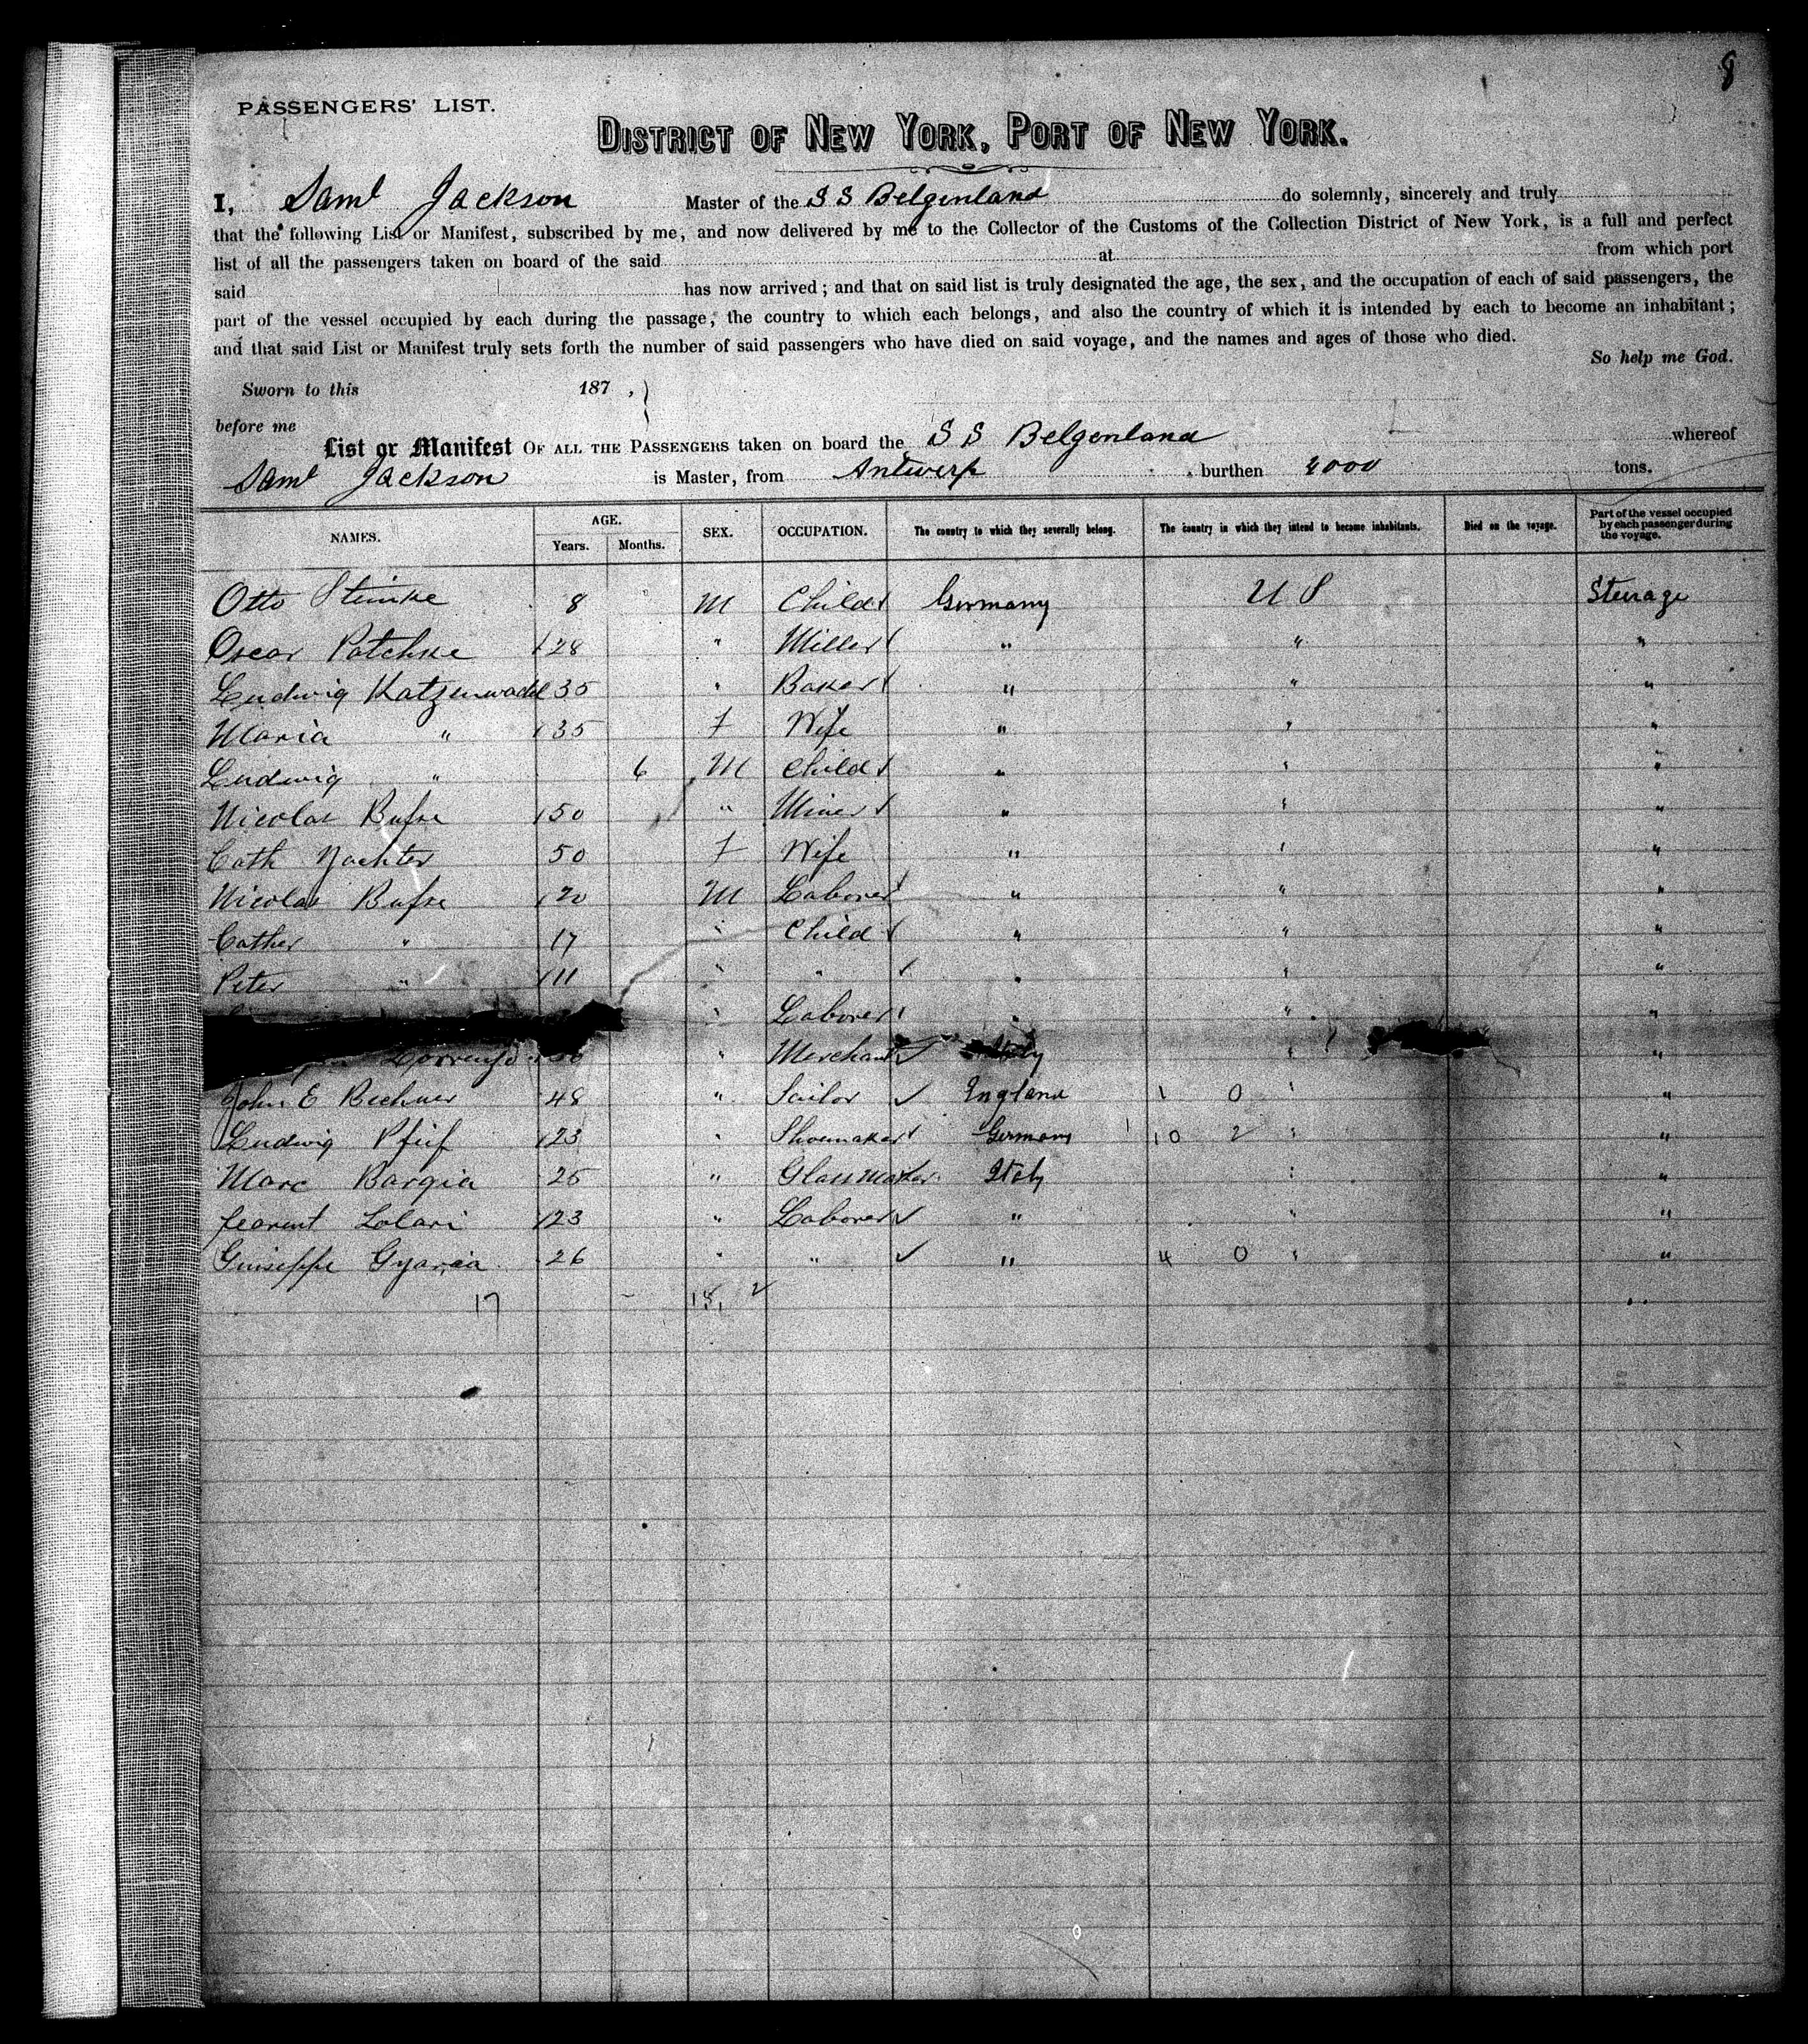 8
PASSENGERS' LIST.
DISTRICT OF NEW YORK, PORT OF NEW YORK.
I, Saml Jackson Master of the S S Belgenland do solemnly, sincerely and truly
that the following List or Manifest, subscribed by me, and now delivered by me to the Collector of the Customs of the Collection District of New York, is a full and perfect
list of all the passengers taken on board of the said at from which port
said has now arrived; and that on said list is truly designated the age, the sex, and the occupation of each of said passengers, the
part of the vessel occupied by each during the passage, the country to which each belongs, and also the country of which it is intended by each to become an inhabitant;
and that said List or Manifest truly sets forth the number of said passengers who have died on said voyage, and the names and ages of those who died.
So help me God.
Sworn to this 187 ,
before me
List or Manifest OF ALL THE PASSENGERS taken on board the S S Belgenland whereof
Saml Jackson is Master, from Antwerp burthen 2000 tons.
NAMES. AGE. Years. Months. SEX. OCCUPATION. The country to which they severally belong. The country in which they intend to become inhabitants. Died on the voyage. Part of the vessel occupied by each passenger during the voyage.
Otto Steinke 8 M Child Germany U S Steerage
Oscar Patchke 28 " Miller " " "
Ludwig Katzenwadel 35 " Baker " " "
Maria " 35 f Wife " " "
Ludwig " 6 M Child " " "
Nicolas Busse 50 " Miner " " "
Cath Nachter 50 f Wife " " "
Nicolas Busse 20 M Laborer " " "
Cather " 17 " Child " " "
Peter " 11 " " " " "
" Laborer " " "
Lorrenso " Merchant Italy " "
John E Bechner 48 " Sailor England 1 0 " "
Ludwig Pfeif 23 " Shoemaker Germany 10 2 " "
Marc Bargia 25 " Glassmaker Italy " "
Lolari 23 " Laborer " " "
Guiseppe Gyarcia 26 " " " 4 0 " "
17 15, 2